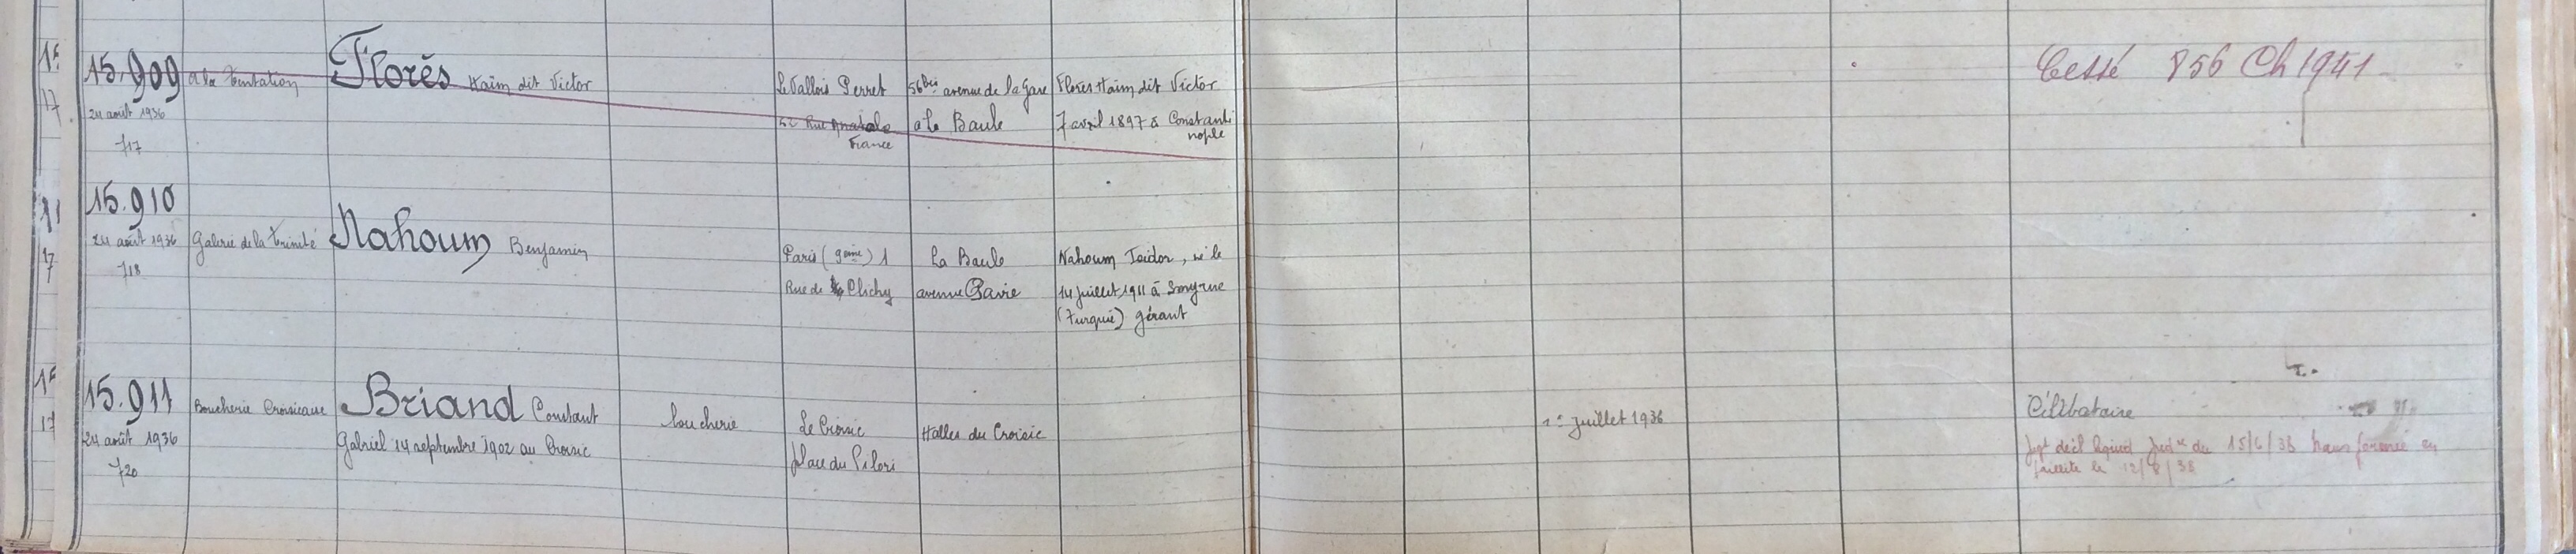 15.909 a la Tentation Florès Haïm dit Victor Levallois Perret 56bis avenue de la Gare Florès Haïm dit Victor Cessé 856 Ch 1941
24 août 1936 52 Rue Anatole a La Baule 7 avril 1897 à Constanti
717 France nople
15.910
24 août 1936 Galerie de la Trinité Nahoum Benjamin Paris (9ème) 1 La Baule Nahoum Isidor, né le
718 Rue de Clichy avenue Pavie 14 juillet 1911 à Smyrne
(Turquie) gérant
15.911 Boucherie Croisicaise Briand Constant boucherie Le Croisic Halles du Croisic 1er Juillet 1936 Célibataire
24 août 1936 Gabriel 14 septembre 1902 au Croisic place du Pilori Jugt décl liquid Judre du 15/6/38 transformée en
720 faillite le 12/8/38